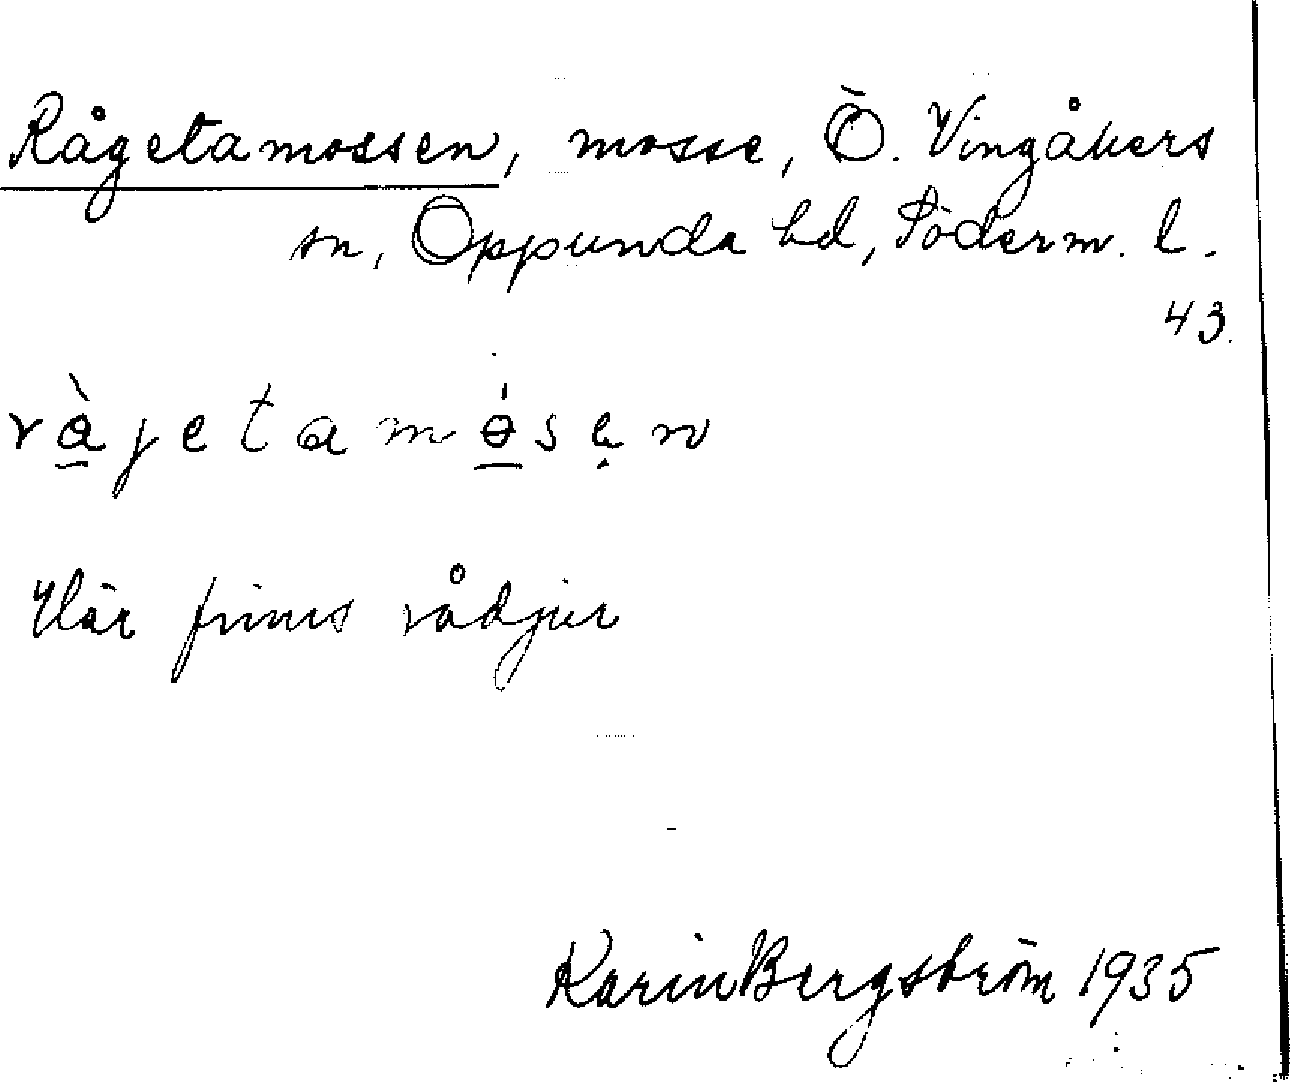 Rågetamossen, mosse, Ö. Vingåkers
sn, Oppunda hd, Söderm. l.
43.
rà̱jetamɵ̱́sẹn
Här finns rådjur
Karin Bergström 1935